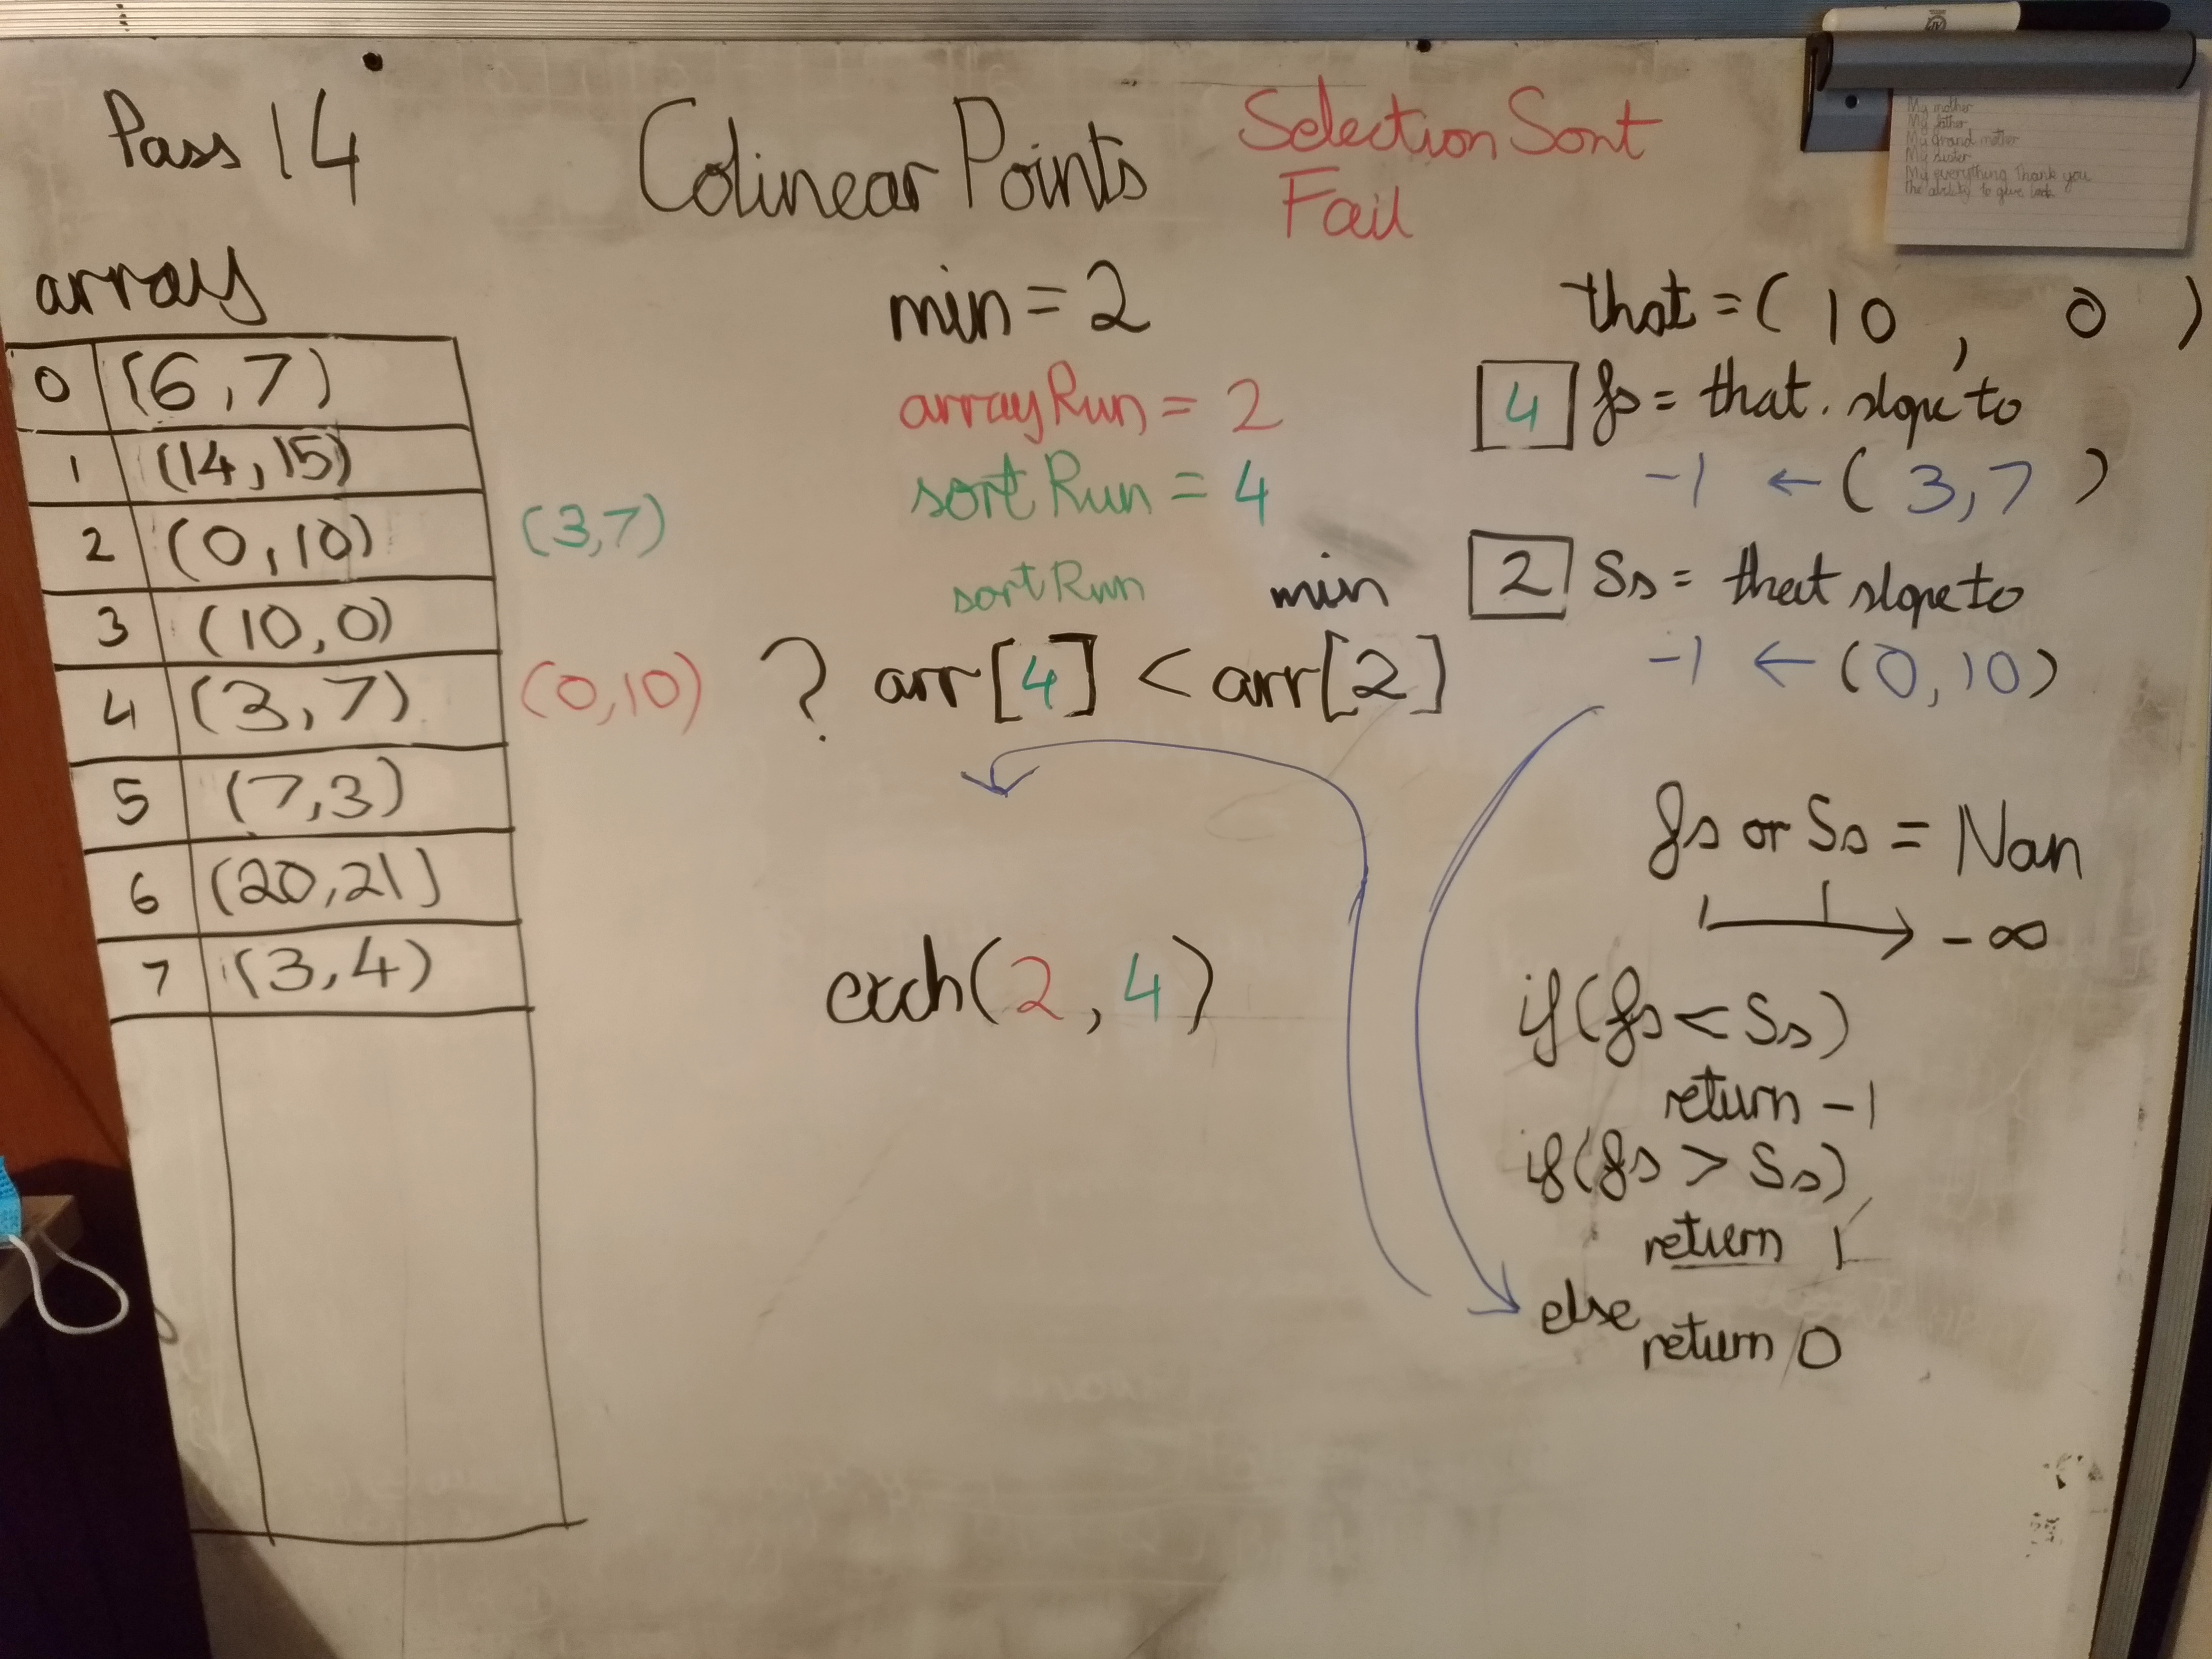 Pass 14
Colinear Points
Selection Sort
Fail
My mother
My father
My grand mother
My sister
My everything thank you
the ability to give back
array
0 (6,7)
1 (14,15)
2 (0,10)
3 (10,0)
4 (3,7)
5 (7,3)
6 (20,21)
7 (3,4)
(3,7)
(0,10)
min = 2
arrayRun = 2
sortRun = 4
sortRun min
? arr[4] < arr[2]
exch(2,4)
that = (10, 0)
4 fs = that. slope to
-1 ← (3,7)
2 Ss = that slope to
-1 ← (0,10)
fs or Ss = Nan
→ -∞
if(fs < Ss)
return -1
if(fs > Ss)
return 1
else
return 0